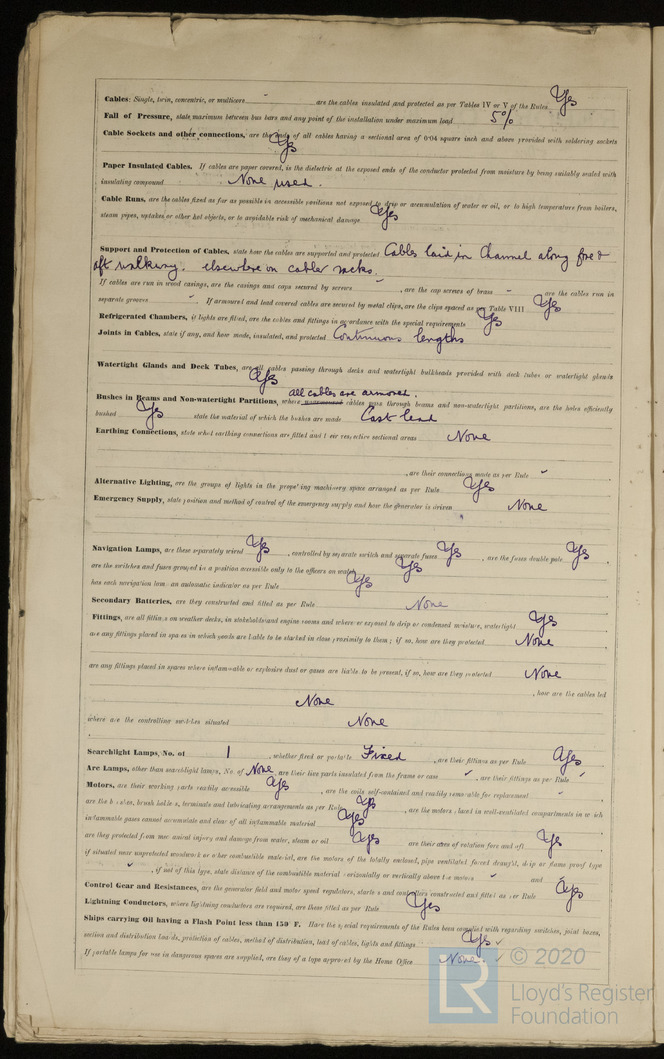 Cables: Single, twin, concentric, or multicore - are the cables insulated and protected as per Tables IV or V of the Rules Yes
Fall of Pressure, state maximum between bus bars and any point of the installation under maximum load 5%
Cable Sockets and other connections, are the ends of all cables having a sectional area of 0·04 square inch and above provided with soldering sockets
Yes
Paper Insulated Cables. If cables are paper covered, is the dielectric at the exposed ends of the conductor protected from moisture by being suitably sealed with
insulating compound None used.
Cable Runs, are the cables fixed as far as possible in accessible positions not exposed to drip or accumulation of water or oil, or to high temperature from boilers,
steam pipes, uptakes or other hot objects, or to avoidable risk of mechanical damage Yes
Support and Protection of Cables, state how the cables are supported and protected Cables laid in Channel along fore &
aft walkway. elsewhere on cable racks.
If cables are run in wood casings, are the casings and caps secured by screws - , are the cap screws of brass - , are the cables run in
separate grooves - . If armoured and lead covered cables are secured by metal clips, are the clips spaced as per Table VIII Yes
Refrigerated Chambers, if lights are fitted, are the cables and fittings in accordance with the special requirements Yes
Joints in Cables, state if any, and how made, insulated, and protected Continuous lengths
Watertight Glands and Deck Tubes, are all cables passing through decks and watertight bulkheads provided with deck tubes or watertight glands
Yes
all cables are armored.
Bushes in Beams and Non-watertight Partitions, where unarmoured cables pass through beams and non-watertight partitions, are the holes efficiently
bushed Yes state the material of which the bushes are made Cast lead
Earthing Connections, state what earthing connections are fitted and their respective sectional areas None
, are their connections made as per Rule -
Alternative Lighting, are the groups of lights in the propelling machinery space arranged as per Rule Yes
Emergency Supply, state position and method of control of the emergency supply and how the generator is driven None
Navigation Lamps, are these separately wired Yes , controlled by separate switch and separate fuses Yes , are the fuses double pole Yes
are the switches and fuses grouped in a position accessible only to the officers on watch Yes
has each navigation lamp an automatic indicator as per Rule Yes
Secondary Batteries, are they constructed and fitted as per Rule None
Fittings, are all fittings on weather decks, in stokeholds and engine rooms and wherever exposed to drip or condensed moisture, watertight Yes
are any fittings placed in spaces in which goods are liable to be stacked in close proximity to them; if so, how are they protected None
are any fittings placed in spaces where inflammable or explosive dust or gases are liable to be present, if so, how are they protected None
, how are the cables led
None
where are the controlling switches situated None
Searchlight Lamps, No. of 1 , whether fixed or portable Fixed , are their fittings as per Rule Yes
Arc Lamps, other than searchlight lamps, No. of None, are their live parts insulated from the frame or case - , are their fittings as per Rule -
Motors, are their working parts readily accessible Yes , are the coils self-contained and readily removable for replacement -
are the brushes, brush holders, terminals and lubricating arrangements as per Rule Yes , are the motors placed in well-ventilated compartments in which
inflammable gases cannot accumulate and clear of all inflammable material Yes
are they protected from mechanical injury and damage from water, steam or oil Yes are their axes of rotation fore and aft Yes
if situated near unprotected woodwork or other combustible material, are the motors of the totally enclosed, pipe ventilated forced draught, drip or flame proof type
- , if not of this type, state distance of the combustible material horizontally or vertically above the motors - and -
Control Gear and Resistances, are the generator field and motor speed regulators, starters and controllers constructed and fitted as per Rule Yes
Lightning Conductors, where lightning conductors are required, are these fitted as per Rule Yes
Ships carrying Oil having a Flash Point less than 150° F. Have the special requirements of the Rules been complied with regarding switches, joint boxes,
section and distribution boards, protection of cables, method of distribution, lead of cables, lights and fittings Yes ✓
If portable lamps for use in dangerous spaces are supplied, are they of a type approved by the Home Office None. ✓
LR © 2020
Lloyd's Register
Foundation